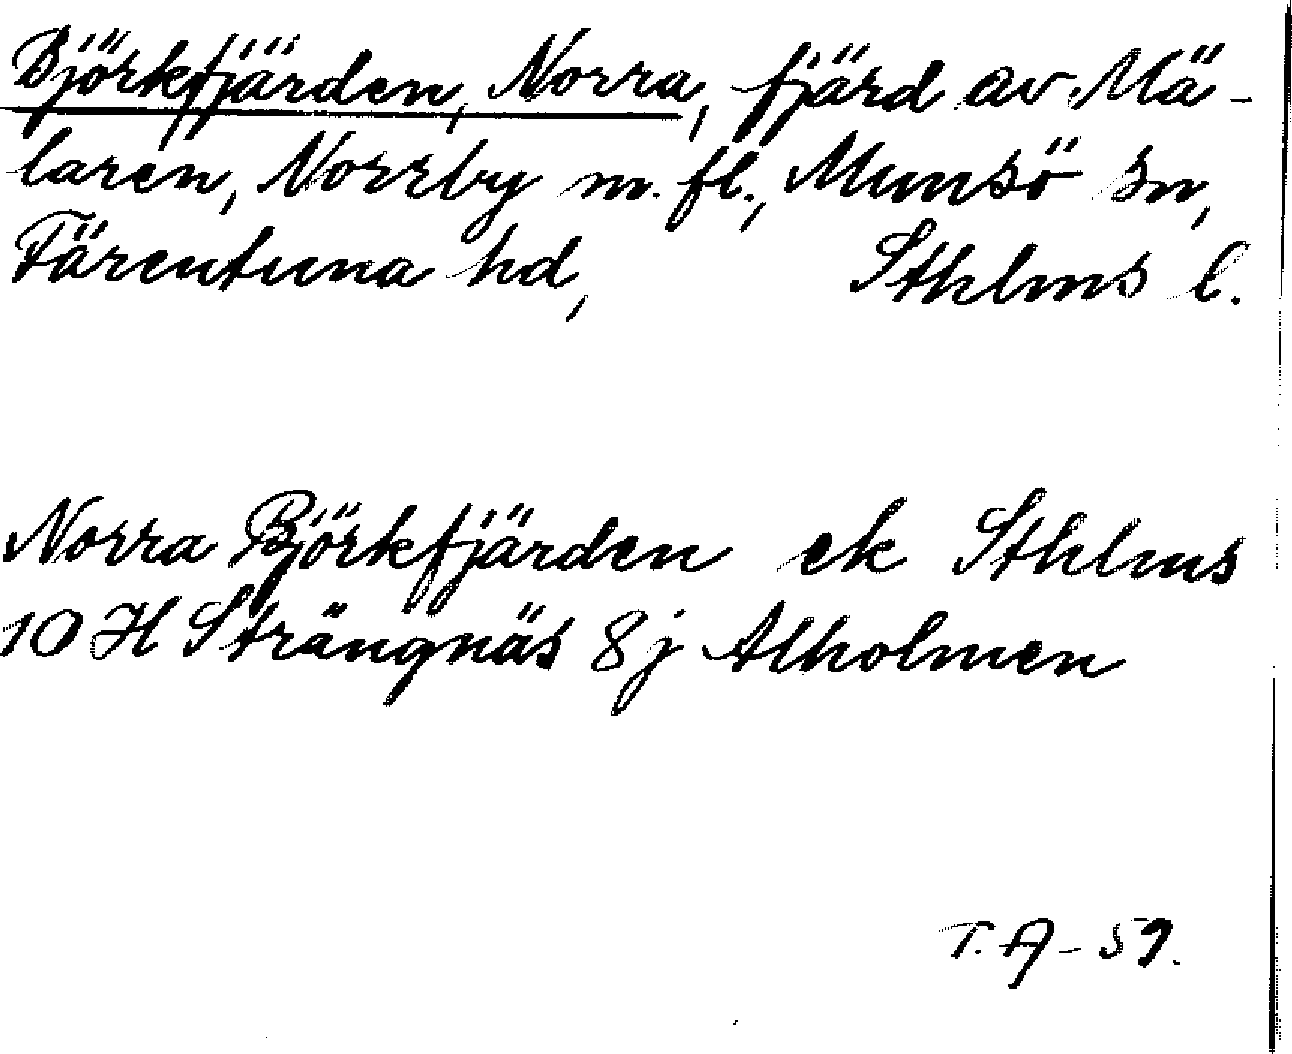 Björkfjärden, Norra, fjärd av Mä-
laren, Norrby m. fl., Munsö sn,
Färentuna hd, Sthlms l.
Norra Björkfjärden ek Sthlms
10 H Strängnäs 8j Alholmen
T. A - 59.